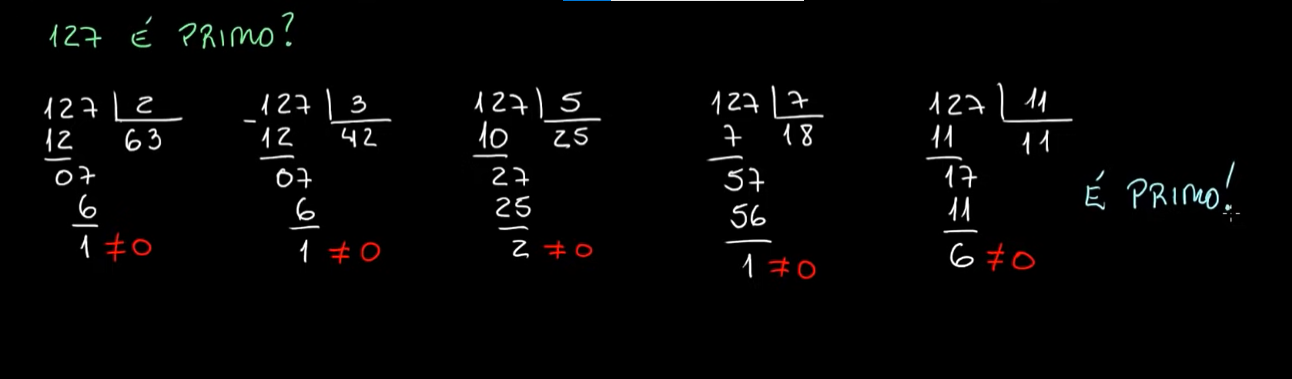 127 É PRIMO?
127 2
12 63
07
6
1 ≠0
-127 3
12 42
07
6
1 ≠0
127 5
10 25
27
25
2 ≠0
127 7
7 18
57
56
1 ≠0
127 11
11 11
17
11
6 ≠0
É PRIMO!